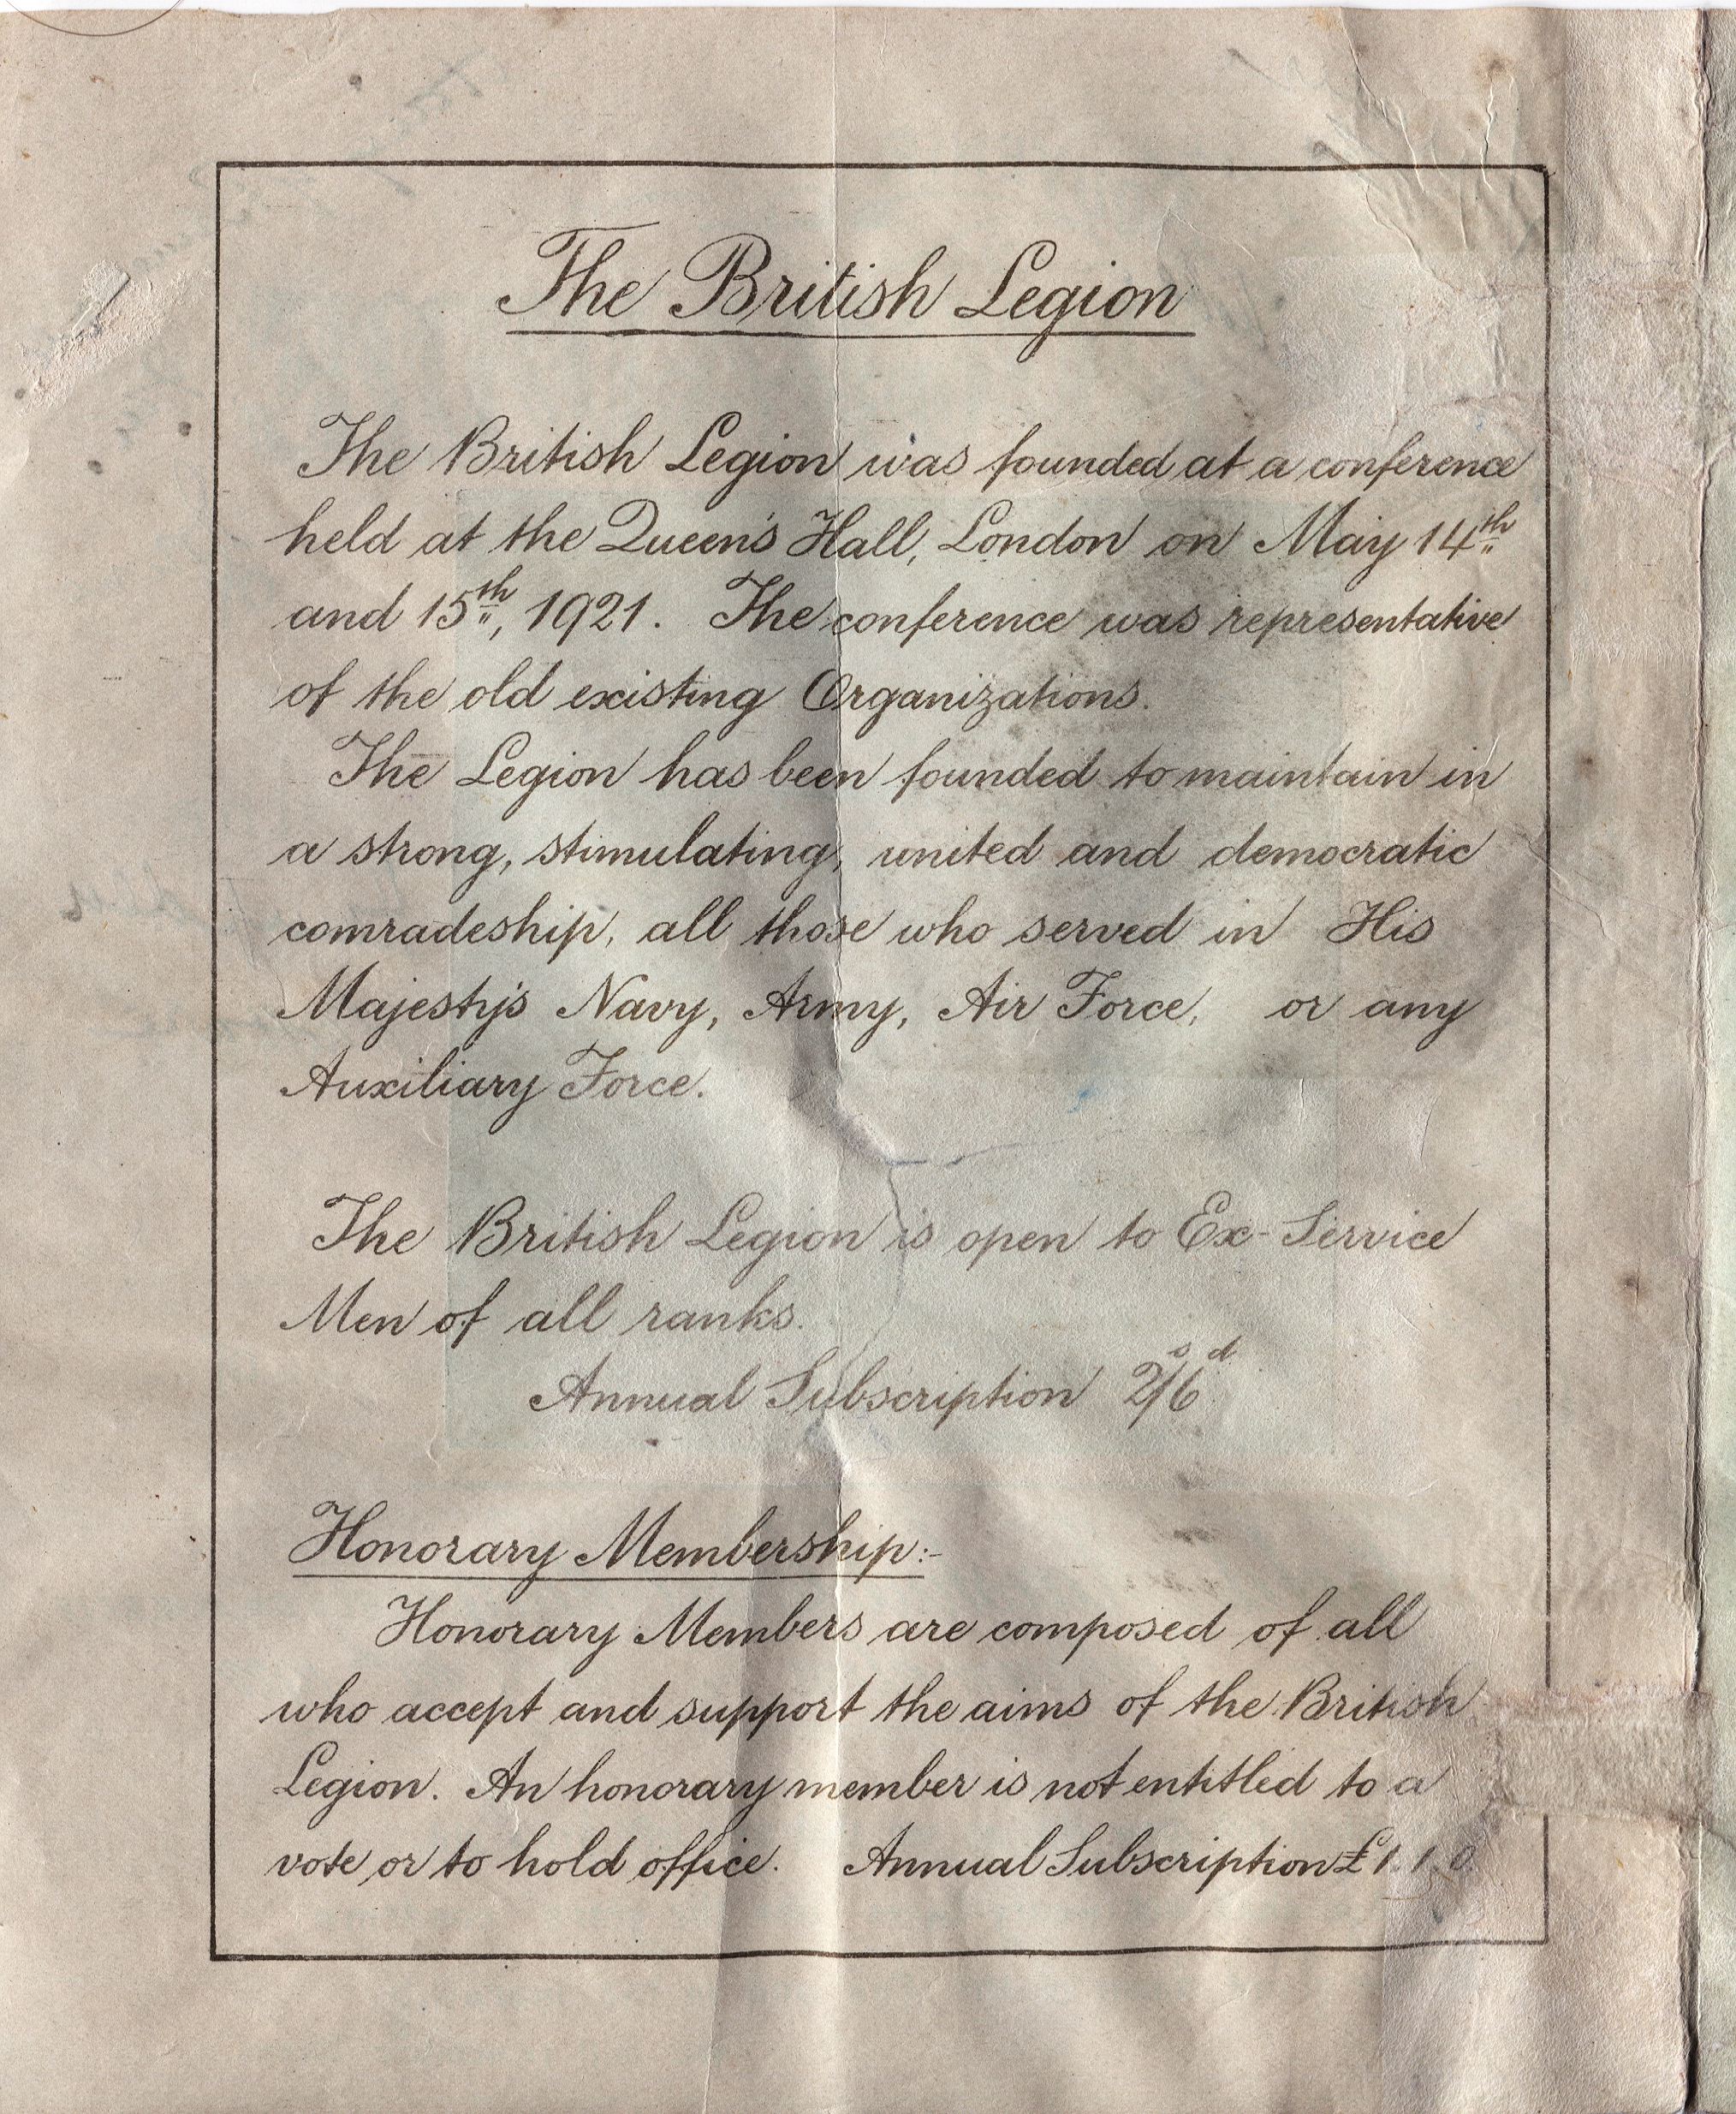 The British Legion
The British Legion was founded at a conference
held at the Queen's Hall, London on May 14th
and 15th, 1921. The conference was representative
of the old existing Organizations.
The Legion has been founded to maintain in
a strong, stimulating, united and democratic
comradeship, all those who served in His
Majesty's Navy, Army, Air Force, or any
Auxiliary Force.
The British Legion is open to Ex-Service
Men of all ranks.
Annual Subscription 2s/6d
Honorary Membership:-
Honorary Members are composed of all
who accept and support the aims of the British
Legion. An honorary member is not entitled to a
vote or to hold office. Annual Subscription £1.1.0